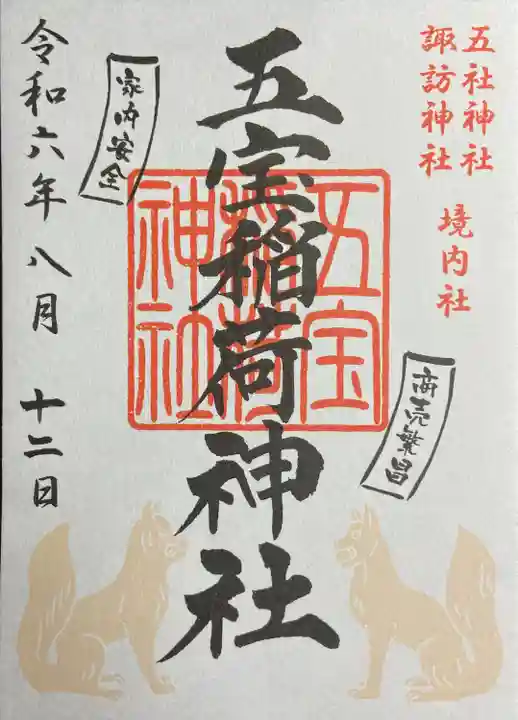 五社神社
諏訪神社
境内社
商売繁昌
五宝稲荷神社
五宝稲荷神社
家内安全
令和六年八月十二日